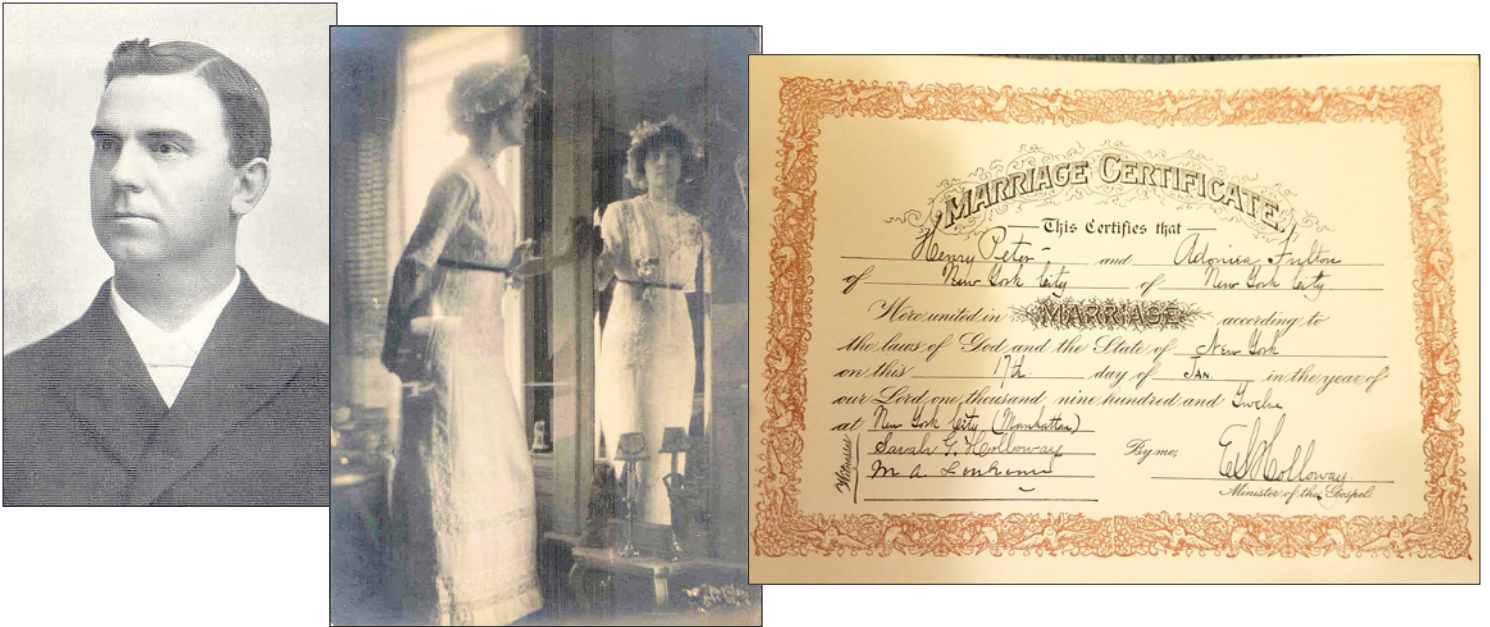 MARRIAGE CERTIFICATE
This Certifies that
Henry Peter and Adonica Fulton
of New York City of New York City
Were united in MARRIAGE according to
the laws of God and the State of New York
on this 17th. day of JAN. in the year of
our Lord one thousand nine hundred and Twelve
at New York City (Manhattan)
Witnesses
Sarah G. Holloway By me, E S Holloway.
M A
Minister of the Gospel